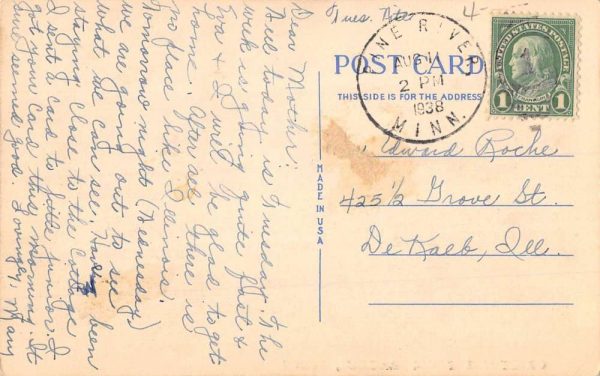 Tues. Nite
4
PINE RIVER
AUG
2 PM
1938
MINN.
UNITED STATES POSTAGE
1 CENT 1
POST CARD
THIS SIDE IS FOR THE ADDRESS
MADE IN USA
Edward Roche
425½ Grove St.
DeKalb, Ill.
Dear Mother:
And today is Tuesday. The
week is going quite fast &
Eva & I will be glad to get
home. After all there is
no place like Illinois.
Tomorrow night (Wednesday)
we are going out to see
what we can see. Have been
staying close to the Cottage.
I sent a card to little Junior. I
got your card this morning. It
sure seemed good. Lovingly, Mary